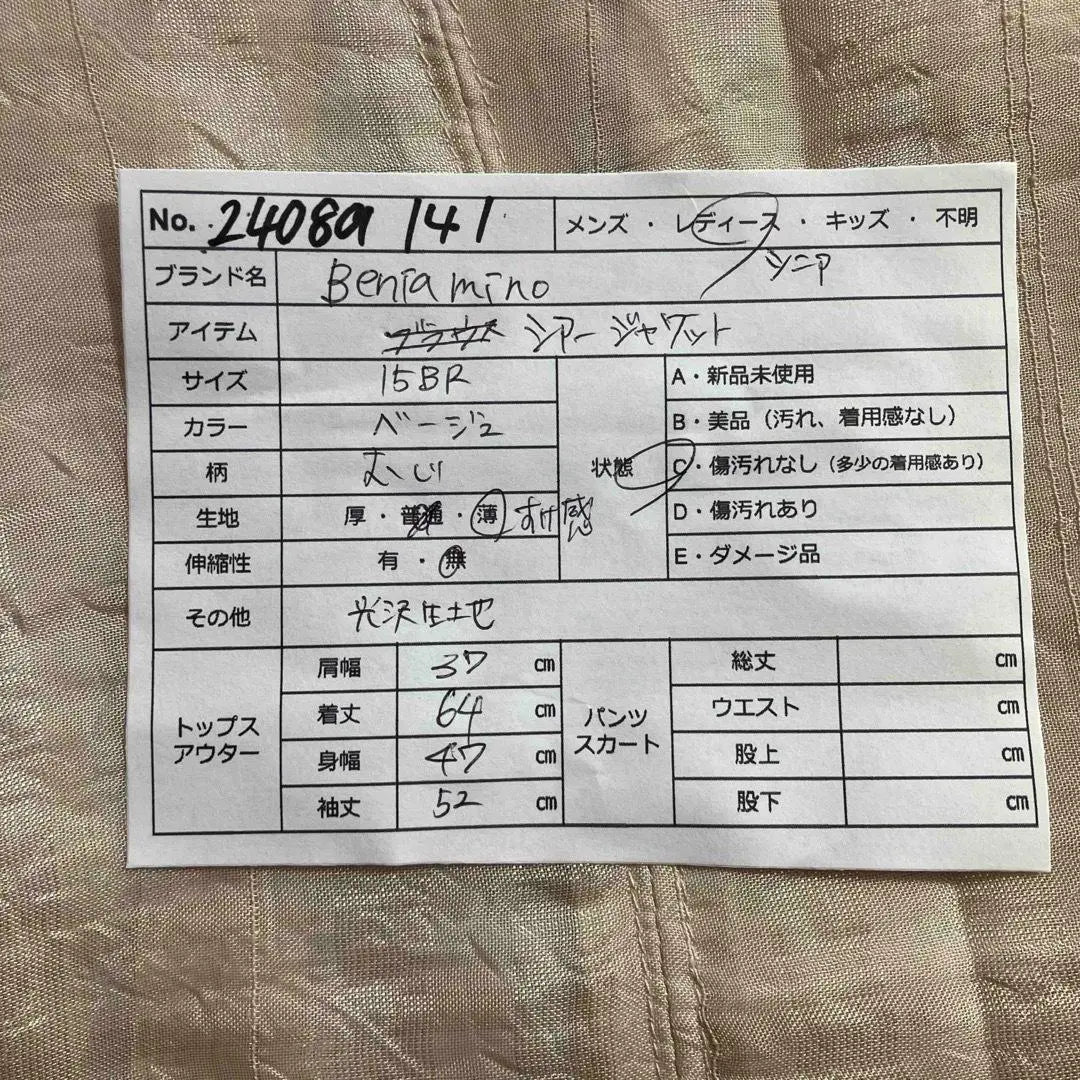 No. 24089 141 メンズ・レディース・キッズ・不明
シニア
ブランド名 Beniamino
アイテム ブラウス シアージャケット
サイズ 15BR
カラー ベージュ
柄 むじ
生地 厚・普通・薄 すけ感
伸縮性 有・無
状態
A・新品未使用
B・美品（汚れ、着用感なし）
C・傷汚れなし（多少の着用感あり）
D・傷汚れあり
E・ダメージ品
その他 光沢生地
トップス
アウター
肩幅 37 cm
着丈 64 cm
身幅 47 cm
袖丈 52 cm
パンツ
スカート
総丈 cm
ウエスト cm
股上 cm
股下 cm